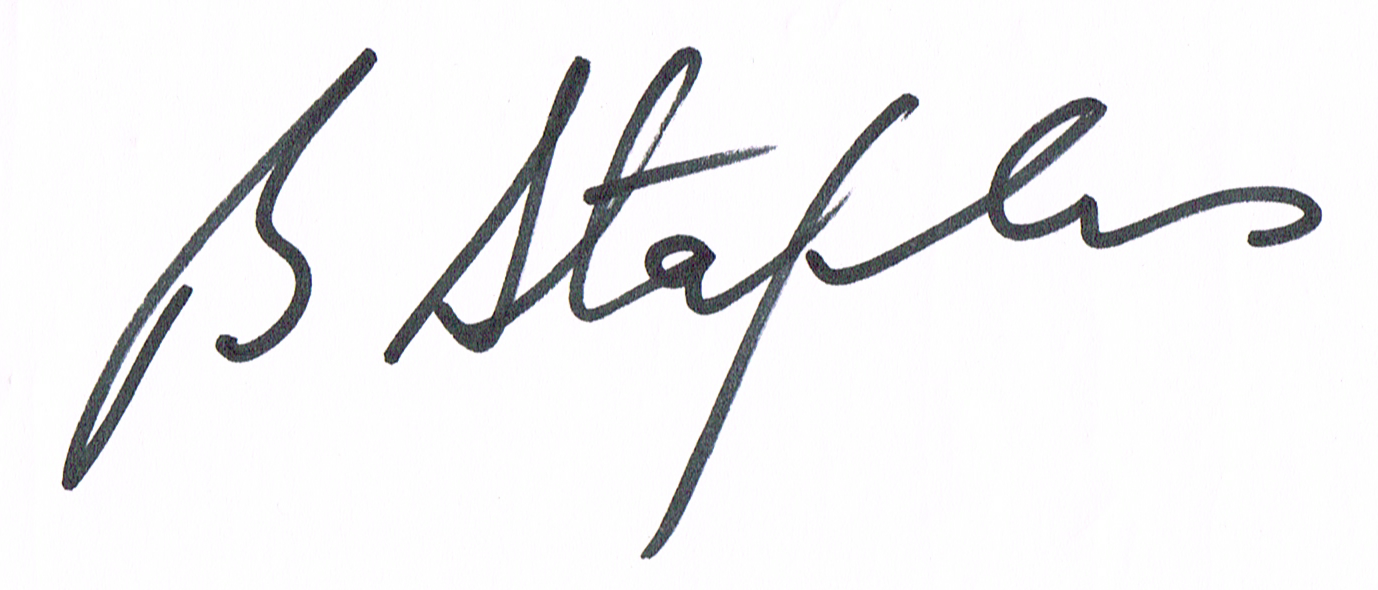 B Staples